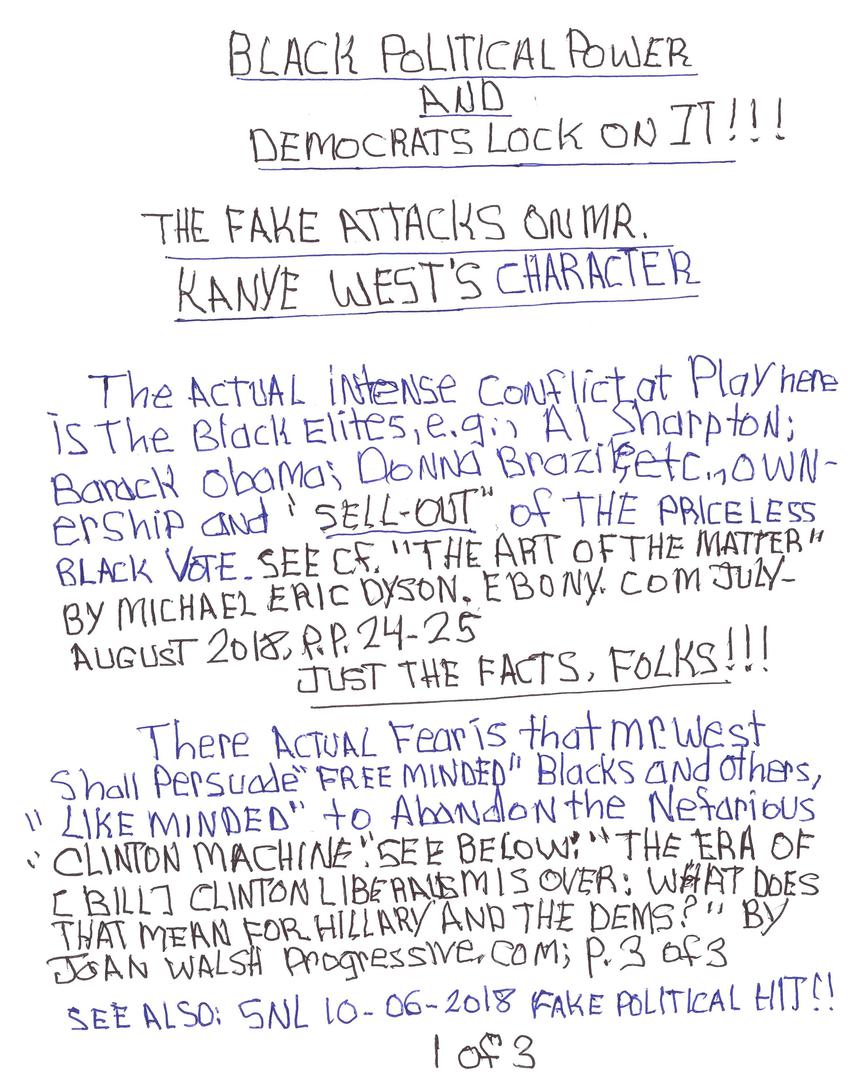 BLACK POLITICAL POWER
AND
DEMOCRATS LOCK ON IT!!!
THE FAKE ATTACKS ON MR.
KANYE WEST'S CHARACTER
The ACTUAL iNtENSE Conflict at Play here
is The Black Elites, e.g., Al SharptoN;
Barack Obama; Donna Brazile, etc., OWN-
erShip and "SELL-OUT" of THE PRICELESS
BLACK VOTE. SEE CF. "THE ART OF THE MATTER"
BY MICHAEL ERIC DYSON. EBONY.COM JULY-
AUGUST 2018, P.P. 24-25
JUST THE FACTS, FOLKS!!!
There ACTUAL Fear is that Mr. West
Shall Persuade "FREE MINDED" Blacks and others,
"LIKE MINDED" to AbandoN the Nefarious
"CLINTON MACHINE". SEE BELOW: "THE ERA OF
[BILL] CLINTON LIBERALISM IS OVER: WHAT DOES
THAT MEAN FOR HILLARY AND THE DEMS?" BY
JOAN WALSH Progressive.com; P. 3 of 3
SEE ALSO: SNL 10-06-2018 FAKE POLITICAL HIT!!
1 of 3